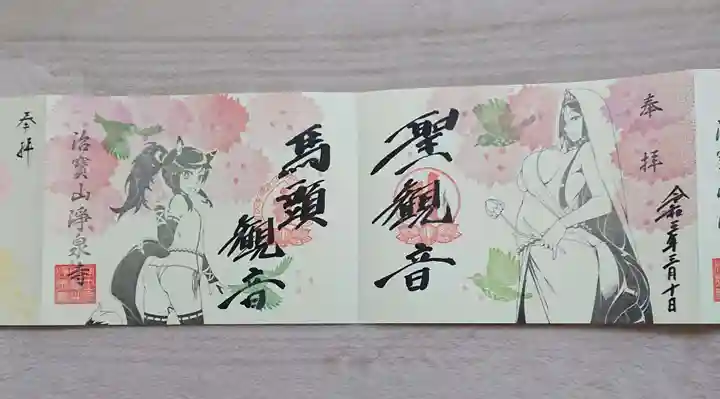 奉拝
令和三年三月十日
聖観音
馬頭
観音
治寳山淨泉寺
奉拝